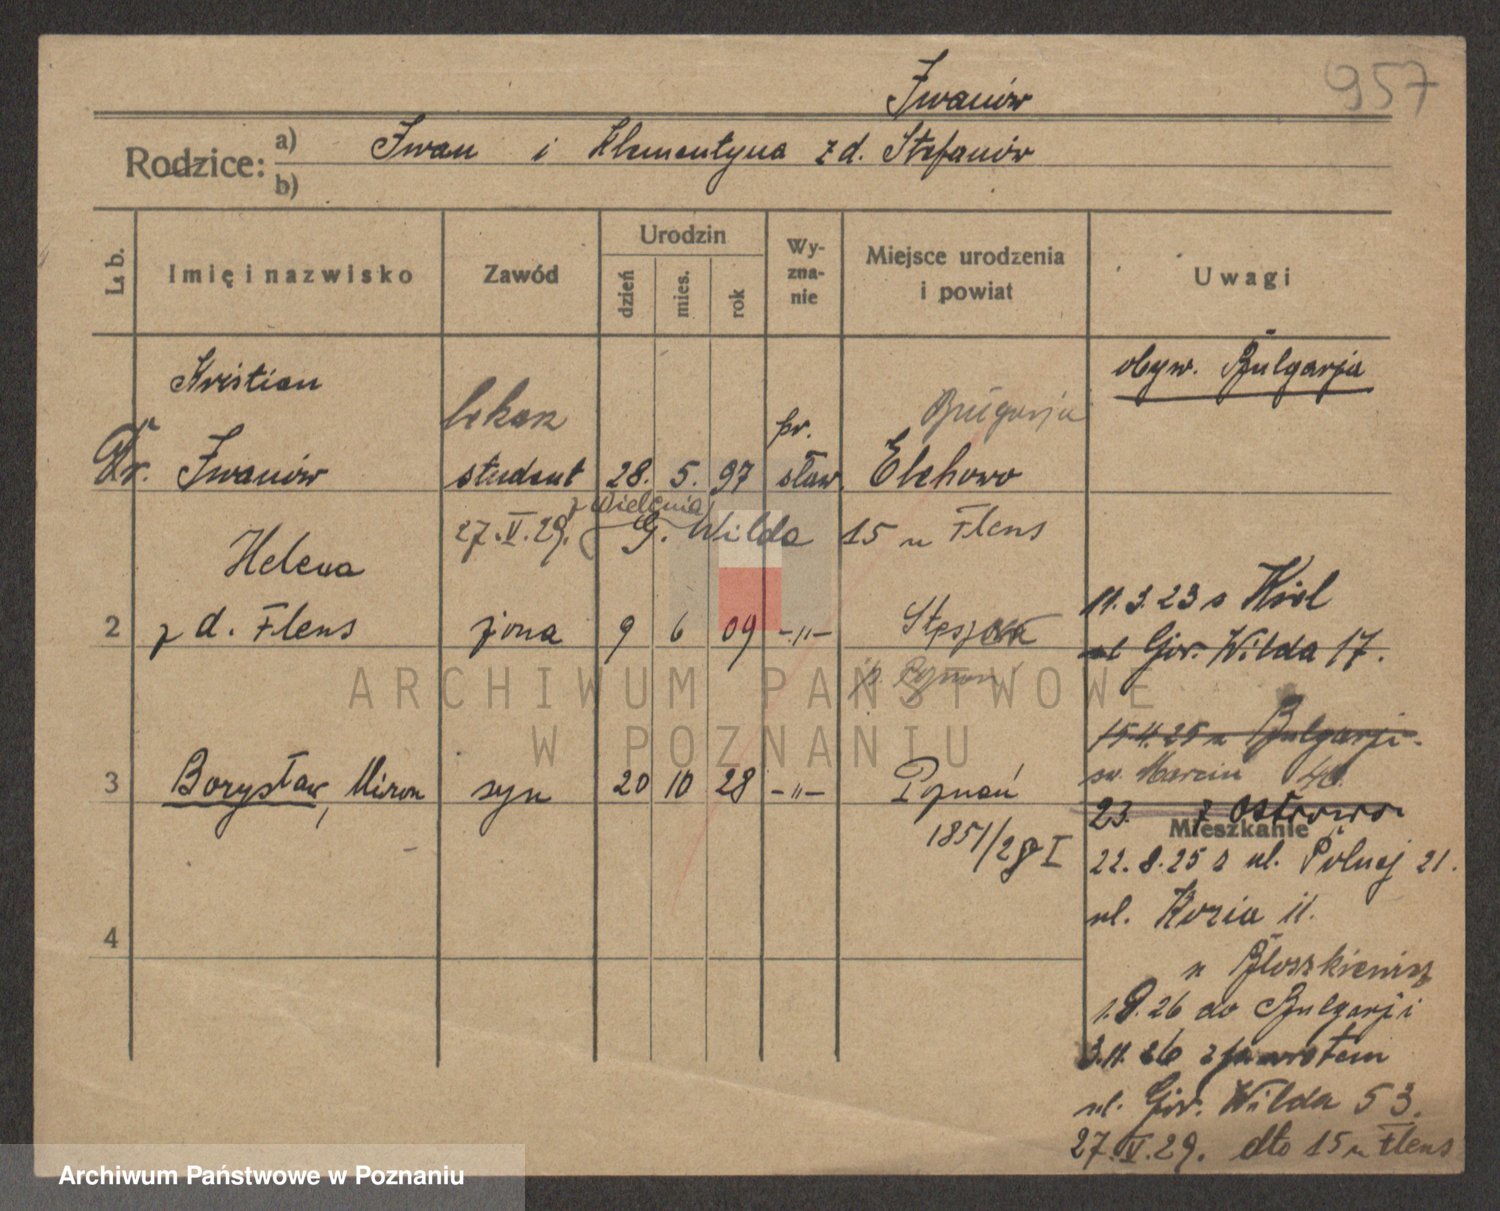 957
Iwanów
Rodzice: a) Iwan i Klementyna z d. Stefanów
b)
L. b.
Imię i nazwisko
Zawód
Urodzin
dzień
mies.
rok
Wy-
zna-
nie
Miejsce urodzenia
i powiat
Uwagi
Kristian
lekarz
pr.
Bułgarja
obyw. Bułgarja
Dr. Iwanów student 28. 5. 97 sław. Elchowo
z Wielenia
27.V.29. G. Wilda 15 u Flens
Helena
2 z d. Flens żona 9 6 09 -"- Stęszew
p. Poznań
11.3.23 z Kiel
ul Gór. Wilda 17.
15.4.25 z Bulgarji
św. Marcin 40.
3 Borysław, Miron syn 20 10 28 -"- Poznań
1851/28 I
23. z Ostrowa
Mieszkanie
22.8.25 z ul. Polnej 21.
ul. Kozia 11.
4
u Błoszkienisz
1.8.26 do Bulgarji
3.11.26 z powrotem
ul. Gór. Wilda 53.
27.V.29. dto 15 u Flens
ARCHIWUM PAŃSTWOWE
W POZNANIU
Archiwum Państwowe w Poznaniu